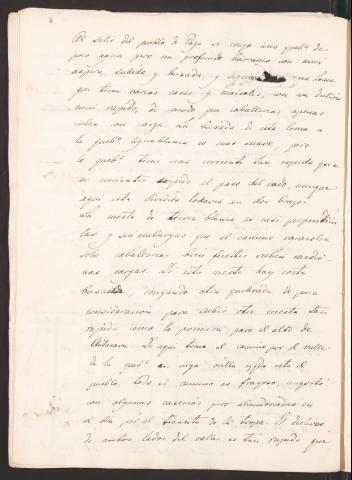 Al salir del pueblo de Paya se cruza una quebª de
poca agua pero un profundo barranco con mui
aspera subida y bajada, y sigue una loma
que tiene varias casas y maizales, con un declivio
mui rapido, de modo que caballerias apenas
suben con carga. La bajada de esta loma a
la quebª Aguablanca es mas suave, pero
la quebª tiene una corriente tan rapida que
en crecientes impide el paso del vado, aunque
aqui esta dividida todavia en dos brazos.
La cuesta de tierra blanca es casi perpendicu
lar y sin embargo que el camino caracolea
solo caballerias bien fuertes suben media
nas cargas. De esta cuesta hay corta
bajada, cruzando otra quebrada de poca
consideracion para subir otra cuesta tan
rapida como la primera, para el alto de
De aqui toma el camino por el valle
de la quebª en cuya orilla izqda esta el
pueblo. Todo el camino es fragoso, angosto
con algunas caserias pero abandonadas en
el dia por el transito de la tropa. El declivio
de ambos lados del valle es tan rapido que